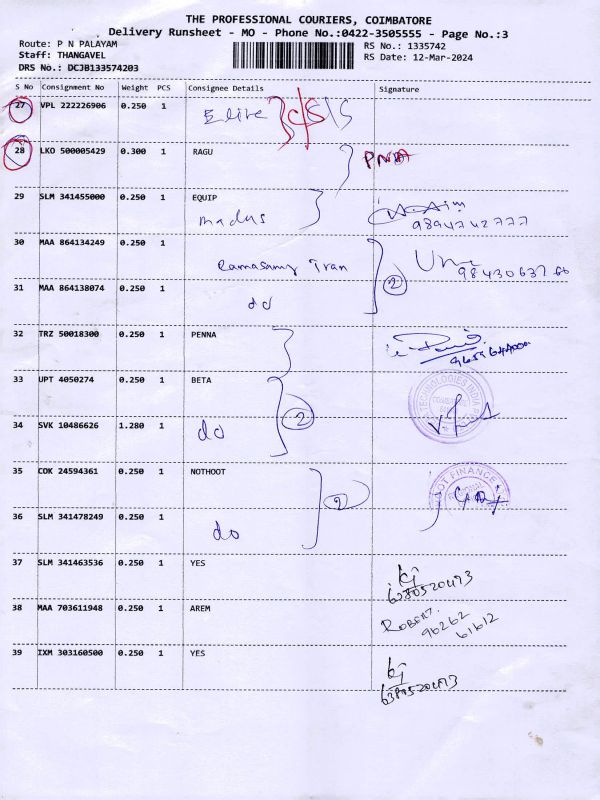 THE PROFESSIONAL COURIERS, COIMBATORE
Delivery Runsheet - MO - Phone No.:0422-3505555 - Page No.:3
Route: P N PALAYAM RS No.: 1335742
Staff: THANGAVEL RS Date: 12-Mar-2024
DRS No.: DCJB133574203
S No Consignment No Weight PCS Consignee Details Signature
27 VPL 222226906 0.250 1 Elite
28 LKO 500005429 0.300 1 RAGU
29 SLM 341455000 0.250 1 EQUIP
madus 9894742777
30 MAA 864134249 0.250 1
Ramasamy Tran 2
31 MAA 864138074 0.250 1
do
32 TRZ 50018300 0.250 1 PENNA
33 UPT 4050274 0.250 1 BETA
TECHNOLOGIES INDIA
34 SVK 10486626 1.280 1 do 2
35 COK 24594361 0.250 1 NOTHOOT
FINANCE
2
36 SLM 341478249 0.250 1
do
37 SLM 341463536 0.250 1 YES
38 MAA 703611948 0.250 1 AREM
ROBERT.
96262
61612
39 IXM 303160500 0.250 1 YES